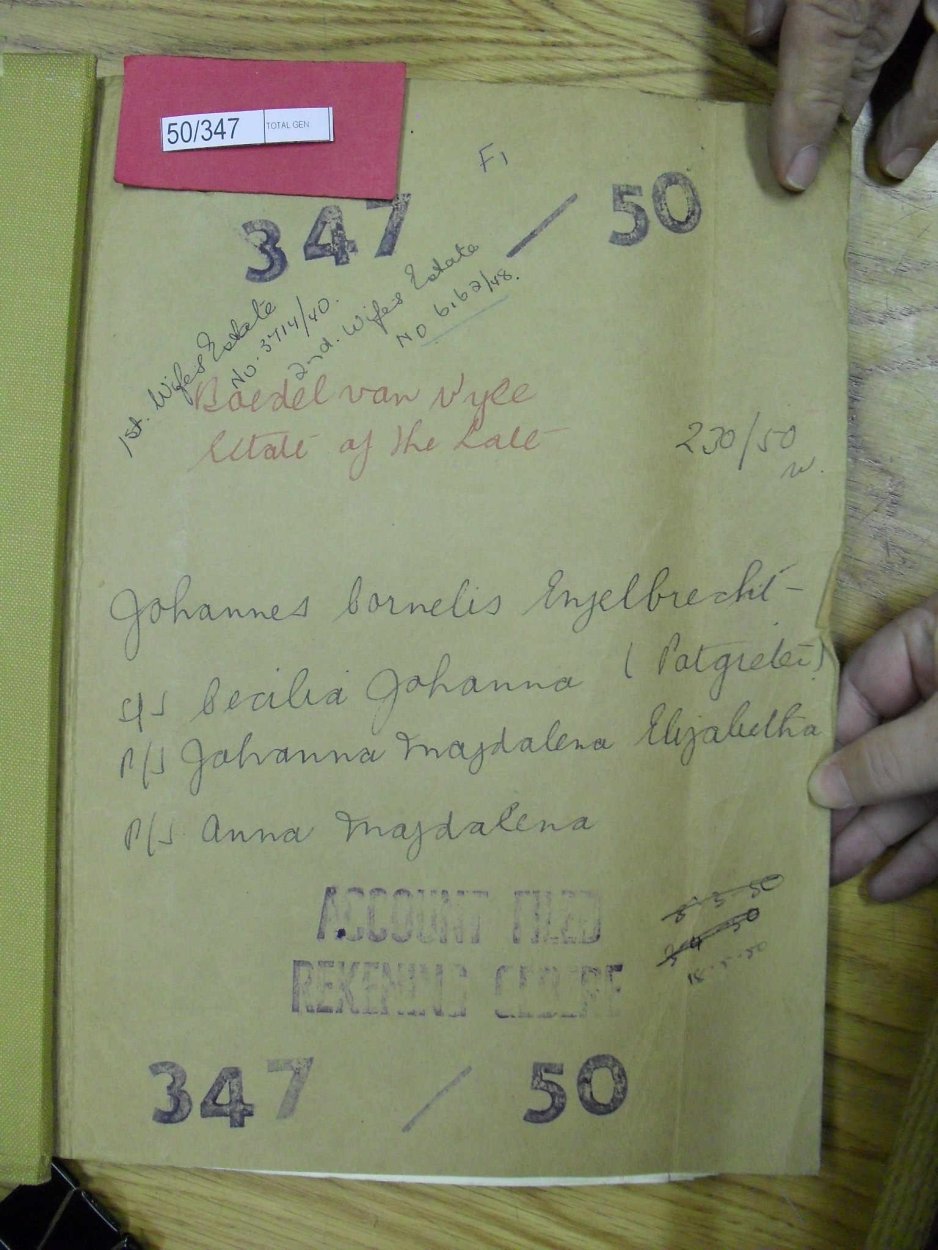 50/347 TOTAL GEN
F1
347 / 50
1st. Wifes Estate
No. 3714/40.
2nd. Wifes Estate
No 6162/48.
Boedel van Wyle
Estate of the Late
230/50
Johannes Cornelis Engelbrecht
s/s Cecilia Johanna (Potgieter)
p/s Johanna Magdalena Elizabetha
p/s Anna Magdalena
ACCOUNT FILED
REKENING
3 4 50
347 / 50